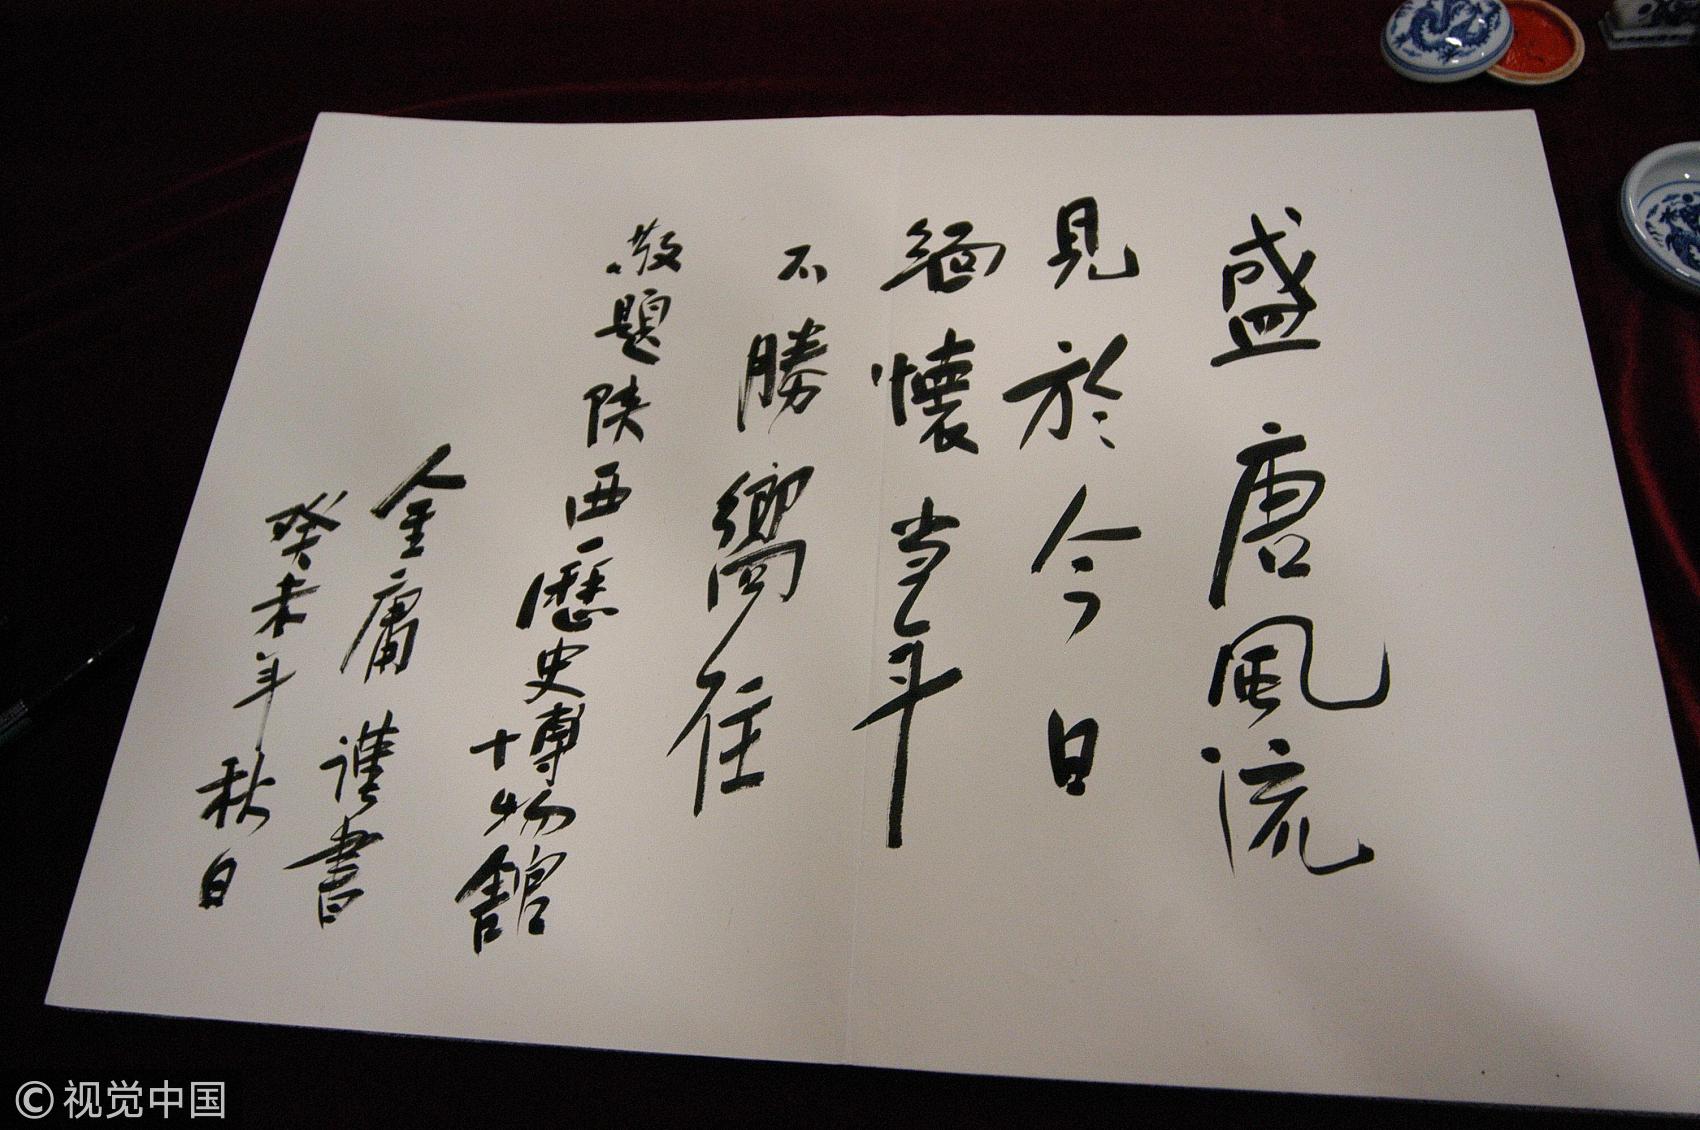 盛唐風流
見於今日
緬懷当年
不勝嚮往
敬題陕西歷史博物館
金庸謹書
癸未年秋日
© 视觉中国